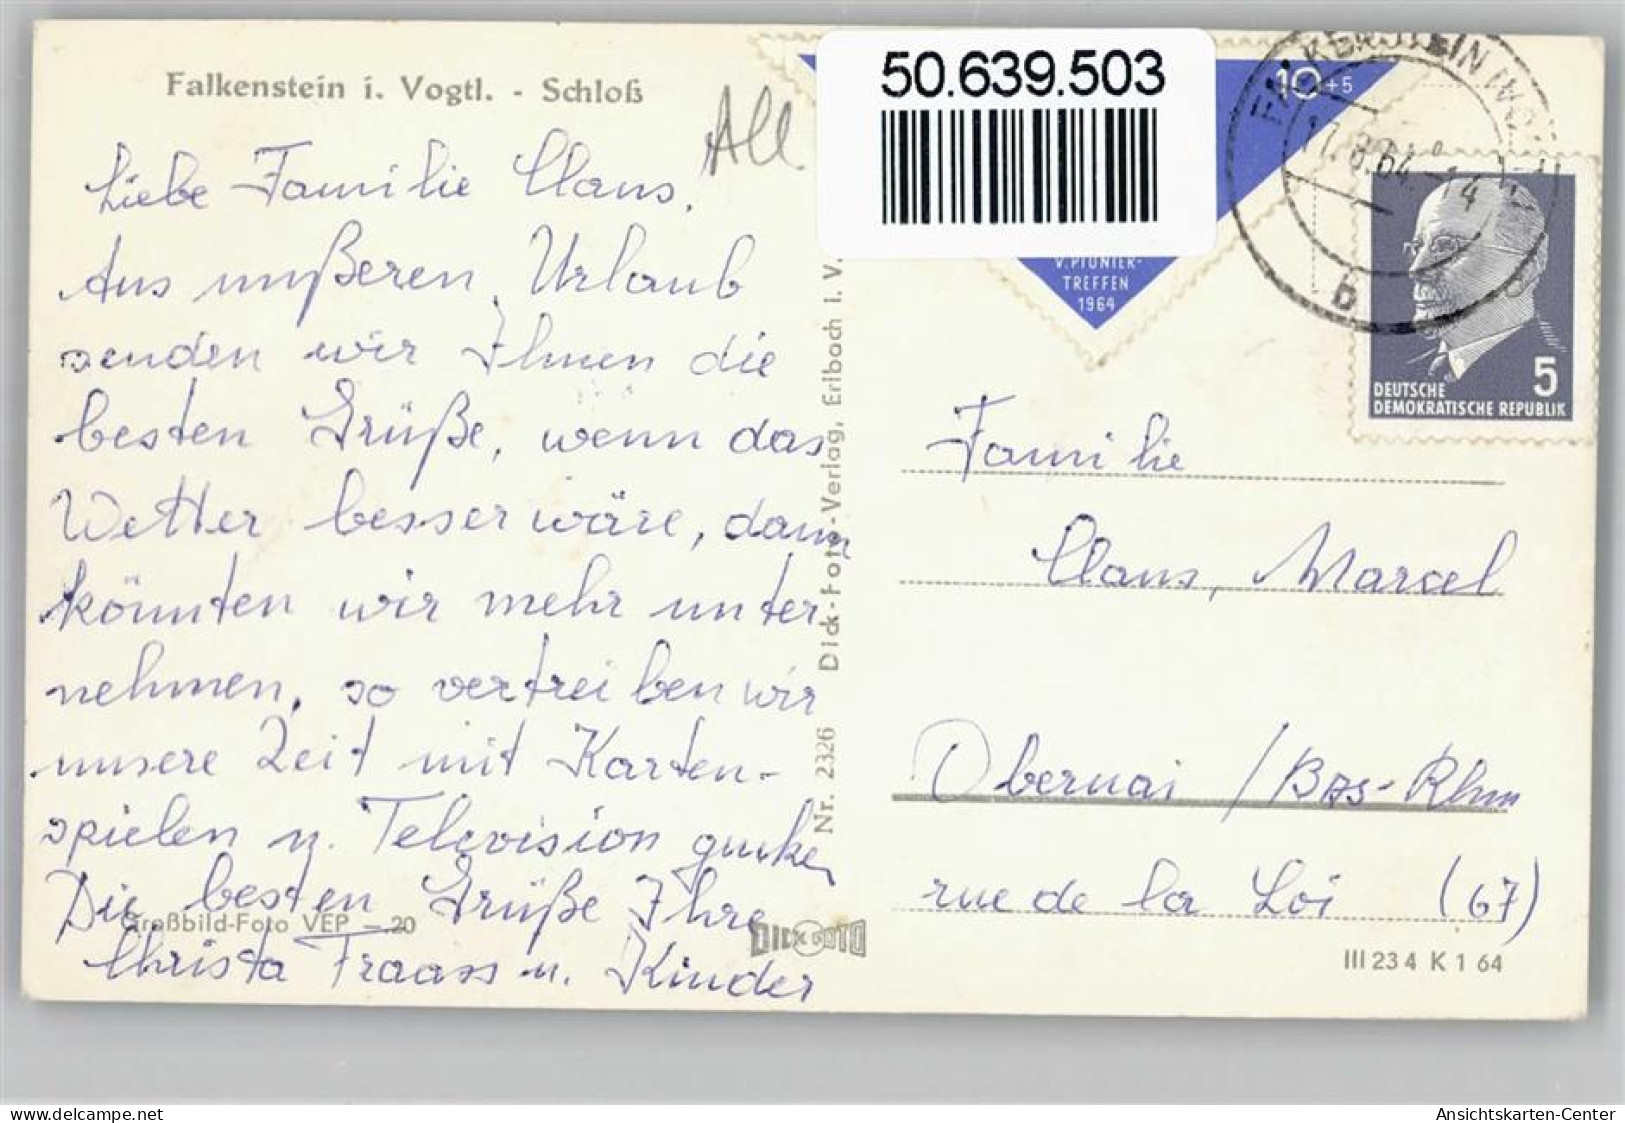 Falkenstein i. Vogtl. - Schloß
All
50.639.503
10+5
V. PIONIER-
TREFFEN
1964
17.8.64.-14
b
5
DEUTSCHE
DEMOKRATISCHE REPUBLIK
Liebe Familie Claus,
Aus unßeren Urlaub
senden wir Ihnen die
besten Grüße, wenn das
Wetter besser wäre, dann
könnten wir mehr unter
nehmen, so vertreiben wir
unsere Zeit mit Karten-
spielen u. Television gucken
Die besten Grüße Ihre
Christa Fraass u. Kinder
Großbild-Foto VEP -.20
Nr. 2326 Dick-Foto-Verlag, Erlbach i. V.
DICK FOTO
Familie
Claus, Marcel
Obernai / Bas-Rhin
rue de la Loi (67)
III 23 4 K 1 64
www.delcampe.net
Ansichtskarten-Center